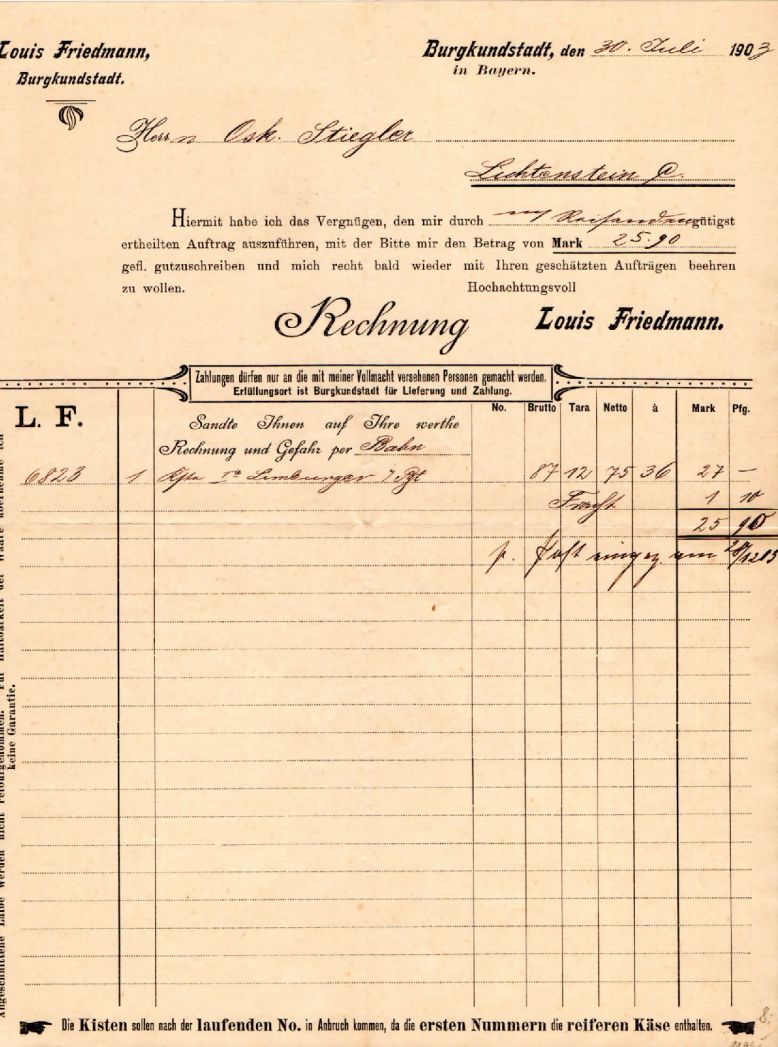 Louis Friedmann,
Burgkundstadt.
Burgkundstadt, den 30. Juli 1903
in Bayern.
Herrn Osk. Stiegler
Lichtenstein C.
Hiermit habe ich das Vergnügen, den mir durch Reisenden gütigst
ertheilten Auftrag auszuführen, mit der Bitte mir den Betrag von Mark 25.90
gefl. gutzuschreiben und mich recht bald wieder mit Ihren geschätzten Aufträgen beehren
zu wollen. Hochachtungsvoll
Rechnung Louis Friedmann.
Zahlungen dürfen nur an die mit meiner Vollmacht versehenen Personen gemacht werden.
Erfüllungsort ist Burgkundstadt für Lieferung und Zahlung.
L. F.
No. Brutto Tara Netto à Mark Pfg.
Sandte Ihnen auf Ihre werthe
Rechnung und Gefahr per Bahn
6823 1 Limburger 87 12 75 36 27 —
Fracht 1 10
25 90
p. Post am
Angeschnittene Laibe werden nicht retourgenommen. Für Haltbarkeit der Waare übernehme ich
keine Garantie.
Die Kisten sollen nach der laufenden No. in Anbruch kommen, da die ersten Nummern die reiferen Käse enthalten.